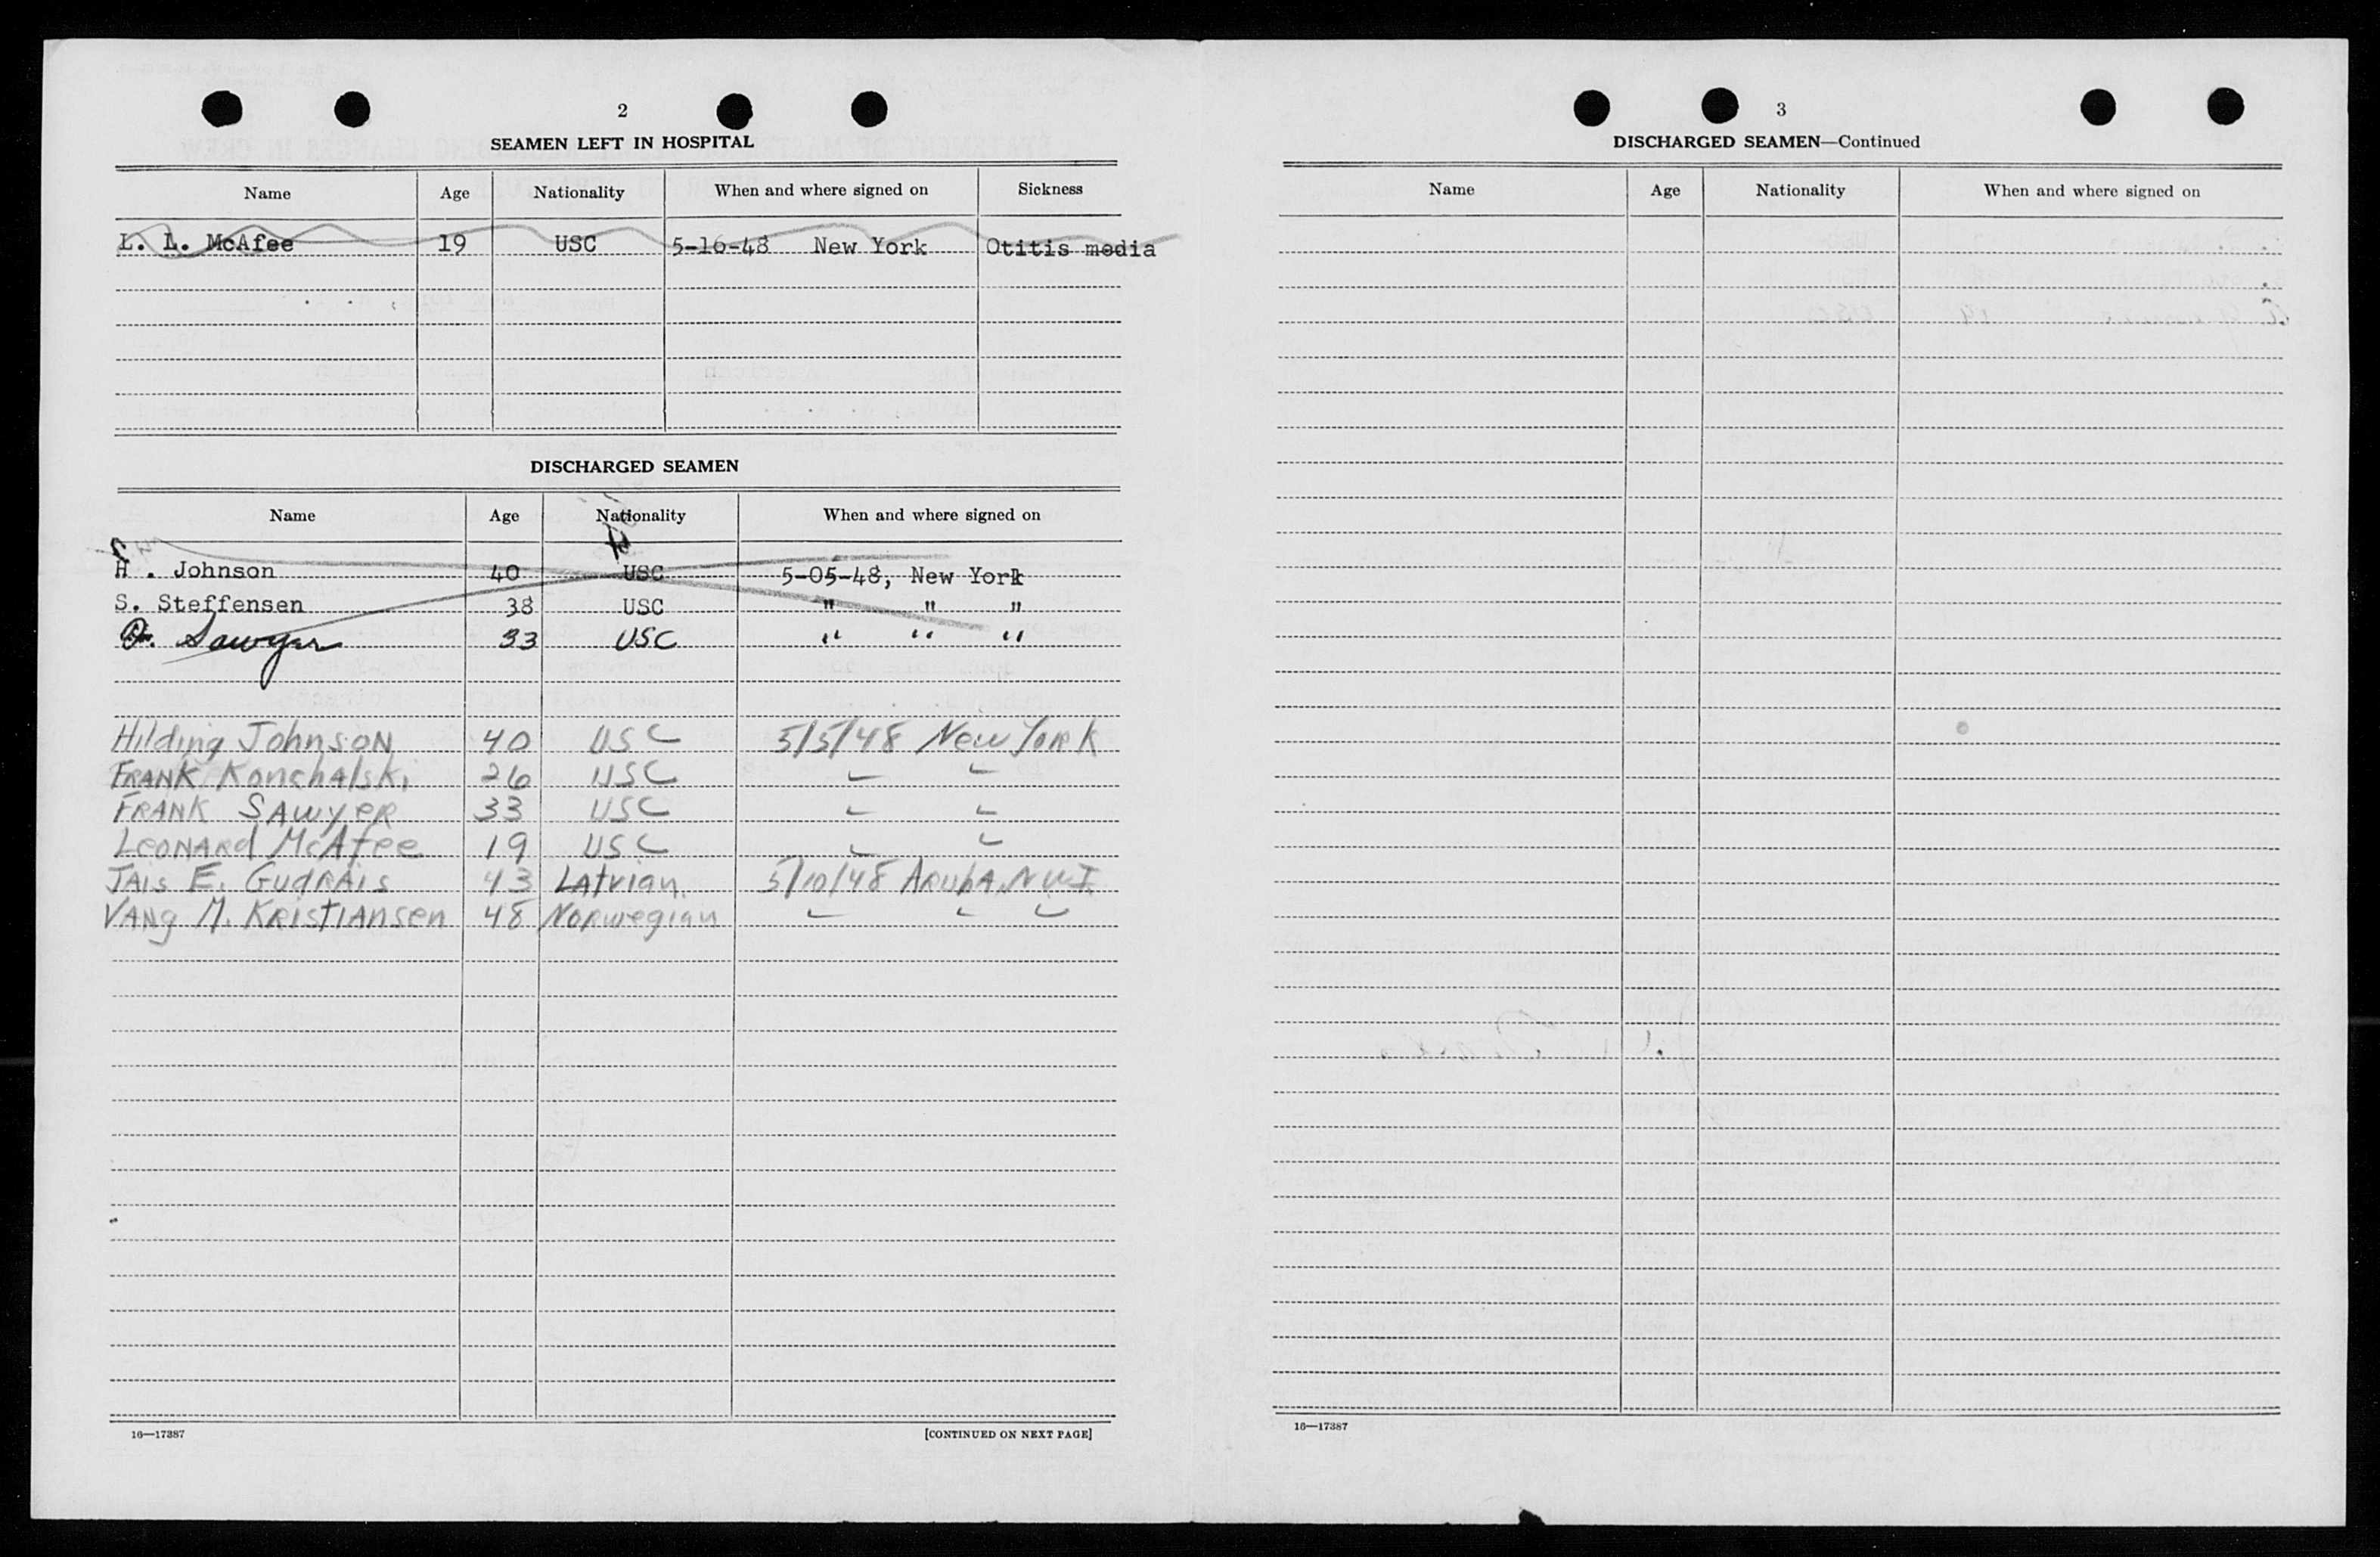 2
SEAMEN LEFT IN HOSPITAL
Name Age Nationality When and where signed on Sickness
L. L. McAfee 19 USC 5-16-48 New York Otitis media
DISCHARGED SEAMEN
Name Age Nationality When and where signed on
H . Johnson 40 USC 5-05-48, New York
S. Steffensen 38 USC " " "
Sawyer 33 USC " " "
Hilding Johnson 40 USC 5/5/48 New York
FRANK Konchalski 26 USC
FRANK SAwyeR 33 USC
LeONARd McAfee 19 USC
JAIS E. GudRAis 43 LAtvian 5/10/48 ARubA, NWI
VANg M. KRistiANsen 48 NoRwegian
16—17387
[CONTINUED ON NEXT PAGE]
3
DISCHARGED SEAMEN—Continued
Name Age Nationality When and where signed on
16—17387